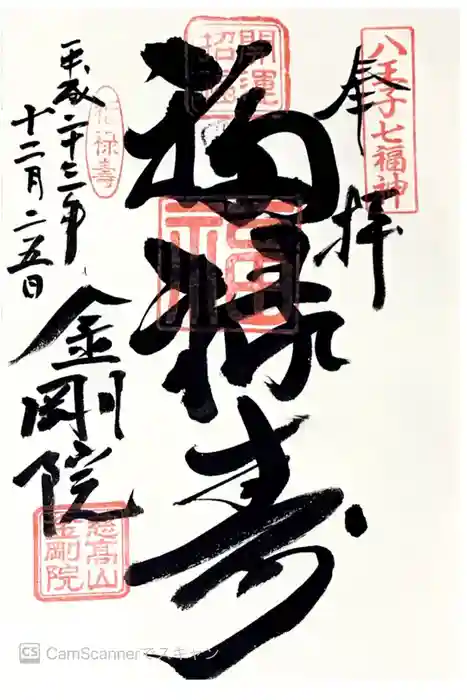 八王子七福神
奉拝
開運
招福
福
福禄寿
福禄壽
平成二十三年
十二月二五日
金剛院
慈高山
金剛院
CS CamScannerでスキャン